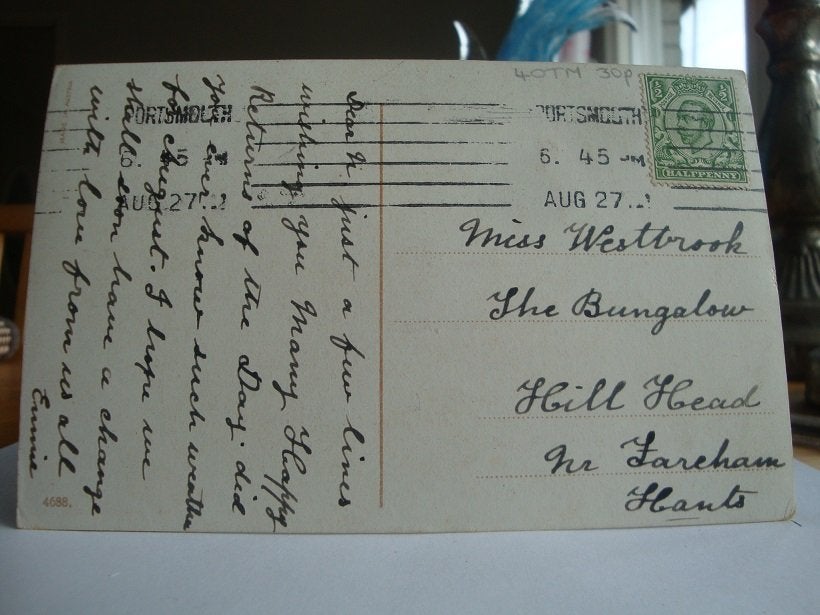 4.0TM 30p
PORTSMOUTH
AUG 27
PORTSMOUTH
6. 45 PM
AUG 27
HALFPENNY
Dear N just a few lines
wishing you Many Happy
Returns of the Day. did
you ever know such weather
for August. I hope we
shall soon have a change
with love from us all
Ennie
Miss Westbrook
The Bungalow
Hill Head
Nr Fareham
Hants
4688.